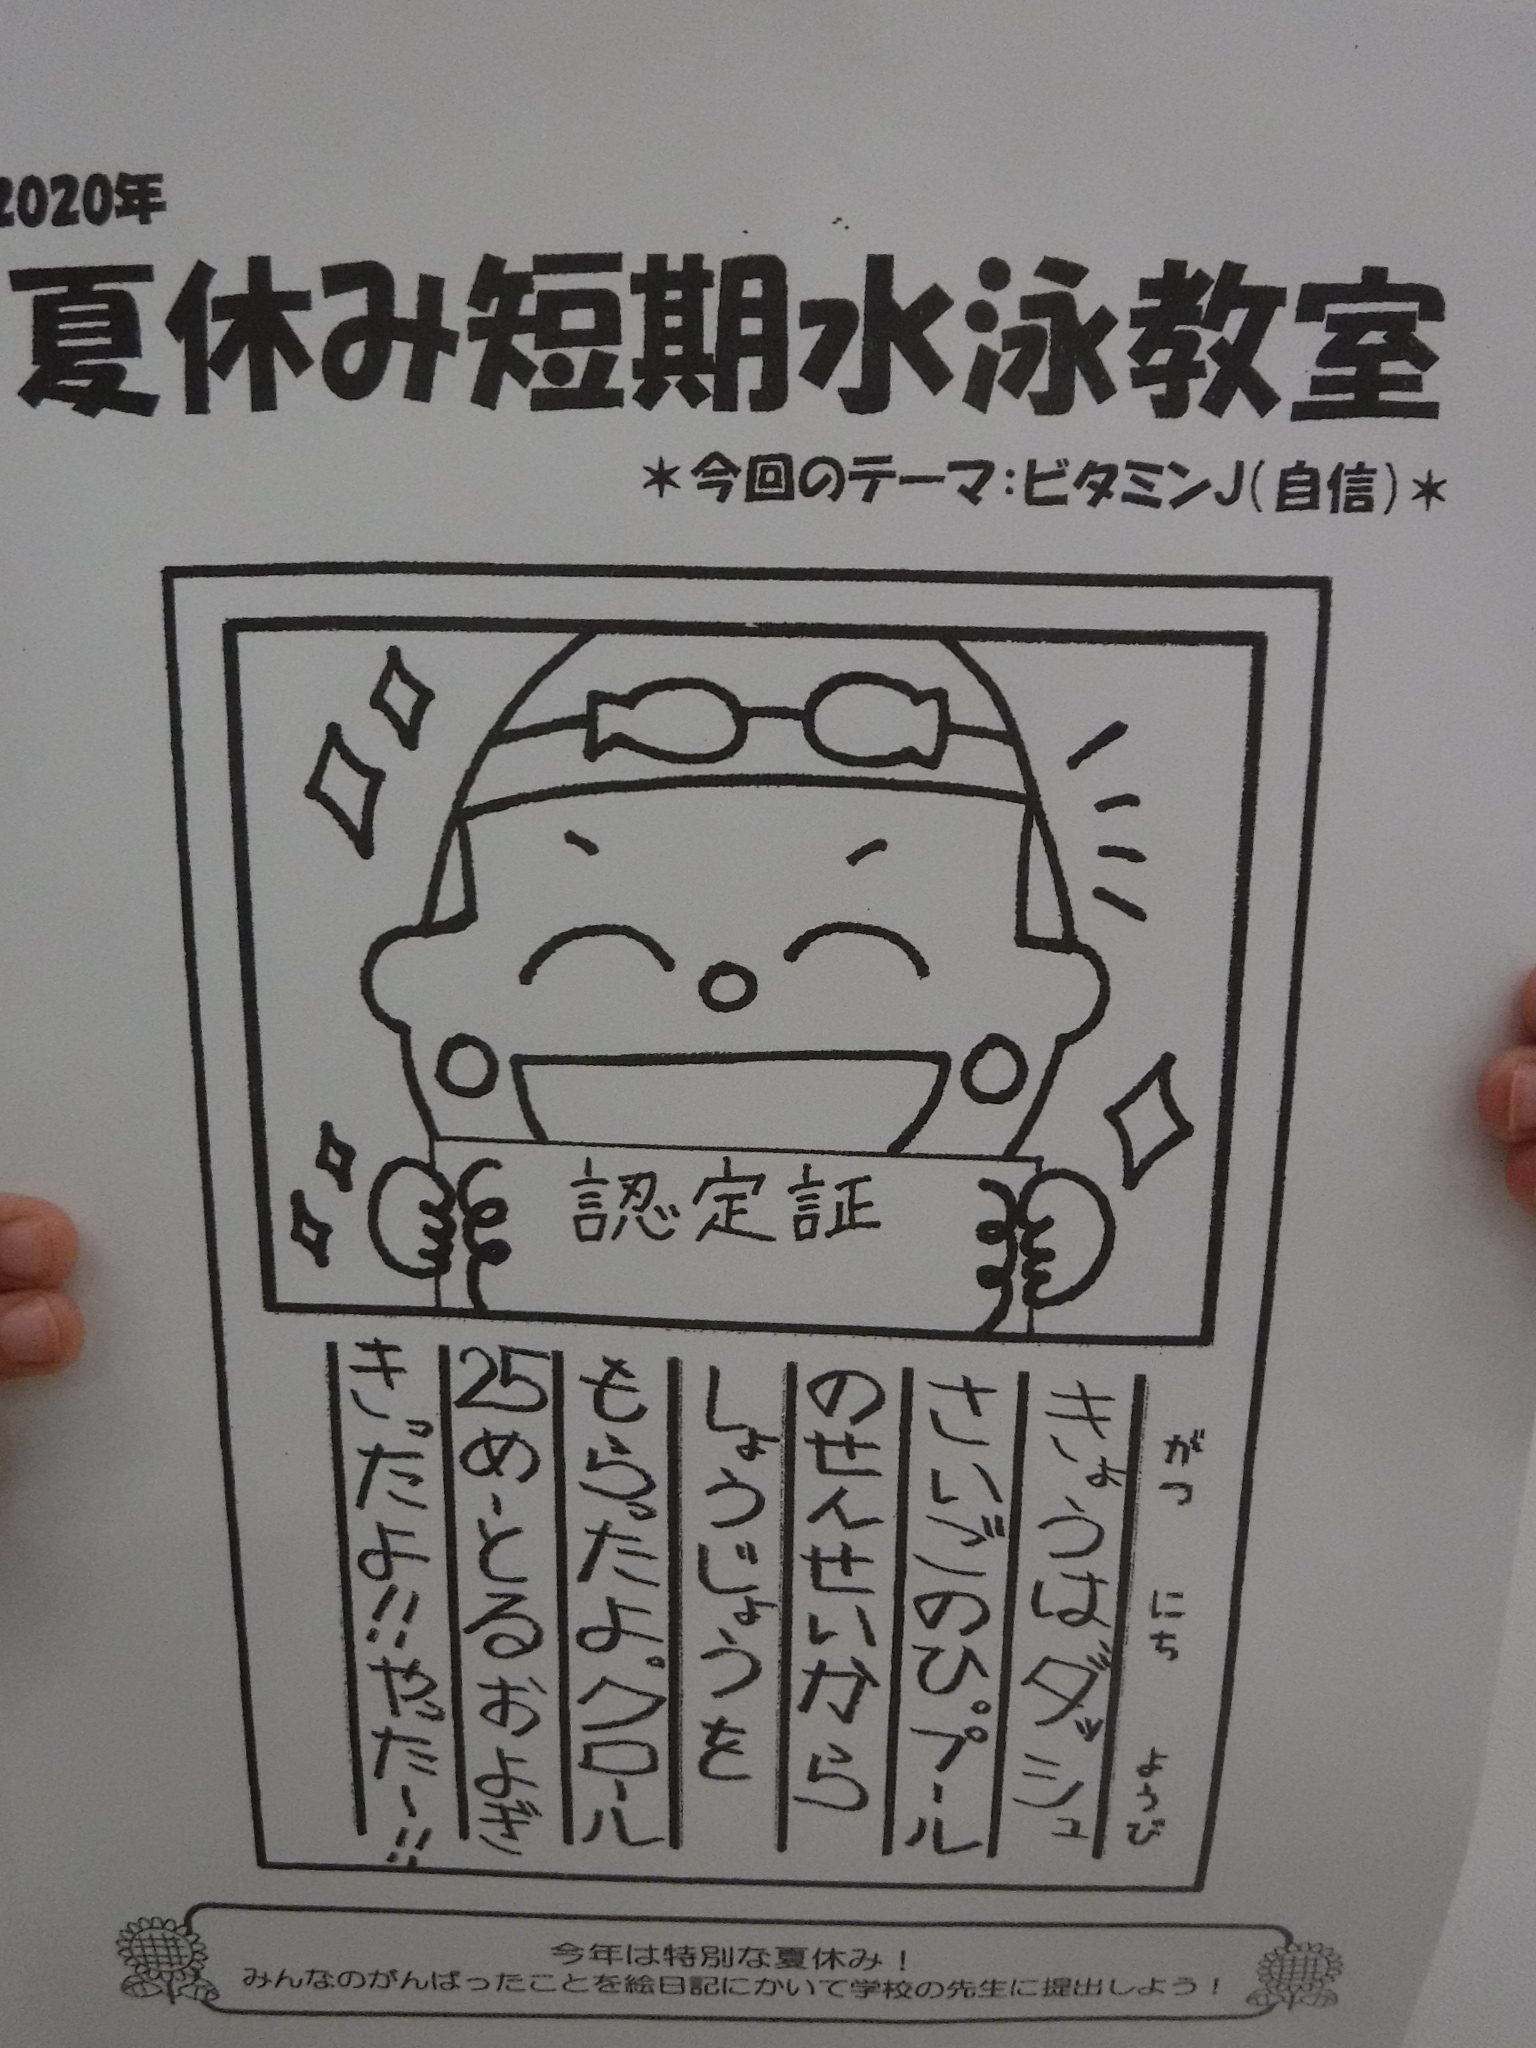 2020年
夏休み短期水泳教室
＊今回のテーマ：ビタミンJ（自信）＊
認定証
がつ　にち　ようび
きょうはダッシュ
さいごのひ。プール
のせんせいから
しょうじょうを
もらったよ。クロール
25めーとるおよぎ
きったよ!!やったー!!
今年は特別な夏休み！
みんなのがんばったことを絵日記にかいて学校の先生に提出しよう！